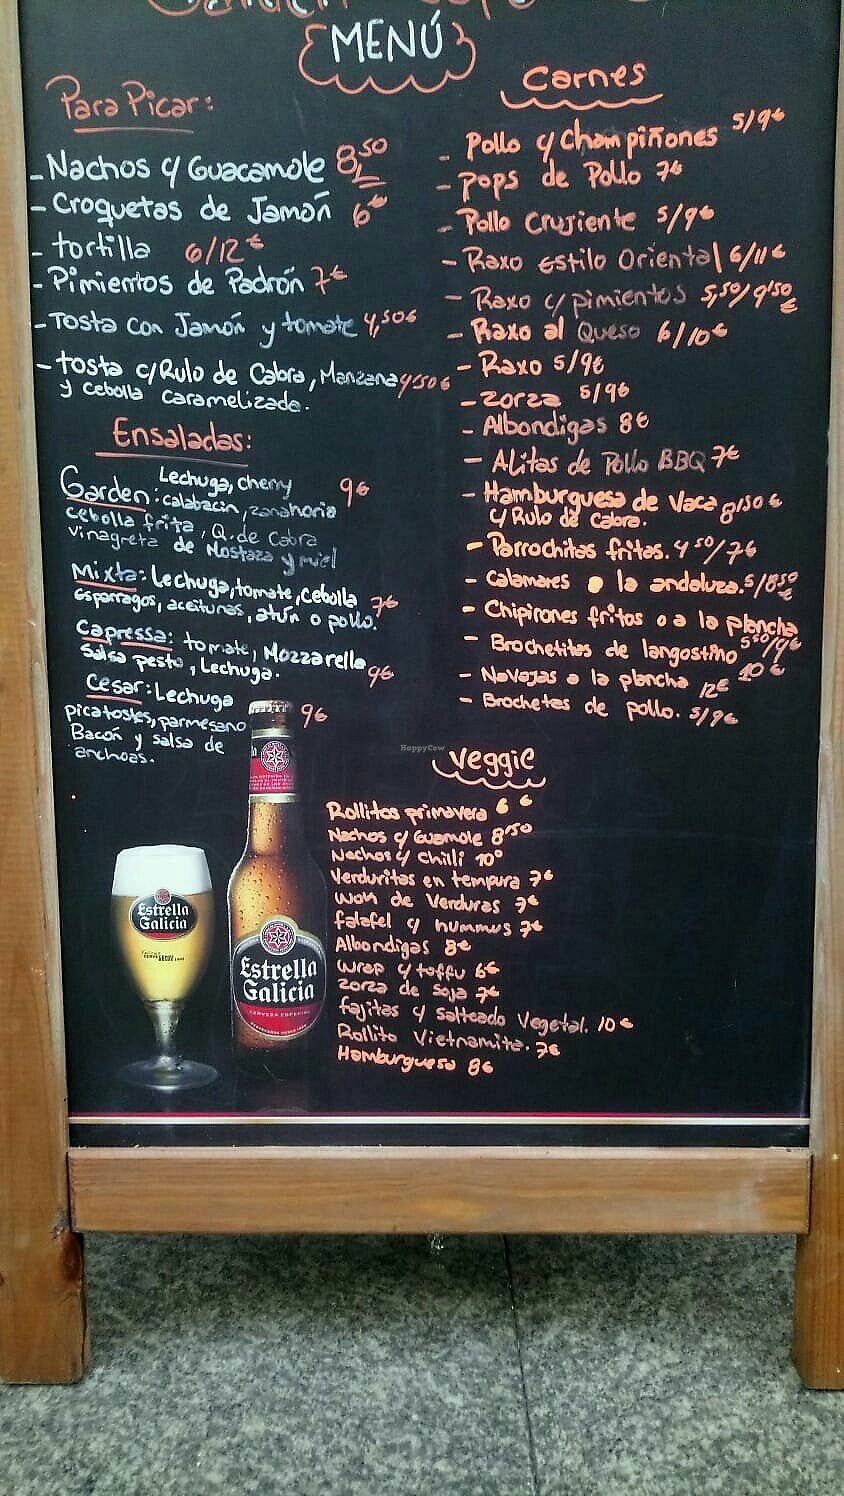 MENÚ
Para Picar:
- Nachos c/ Guacamole 8,50
- Croquetas de Jamón 6€
- tortilla 6/12€
- Pimientos de Padrón 7€
- Tosta con Jamón y tomate 4,50€
- tosta c/Rulo de Cabra, Manzana 4'50€
y cebolla caramelizada.
Ensaladas:
Garden: Lechuga, cherry 9€
calabacin, zanahoria
cebolla frita, Q. de Cabra
vinagreta de Mostaza y miel
Mixta: Lechuga, tomate, cebolla
esparragos, aceitunas, atún o pollo. 7€
Capressa: tomate, Mozzarella
Salsa pesto, Lechuga. 9€
Cesar: Lechuga
picatostes, parmesano 9€
Bacon y salsa de
anchoas.
Carnes
- Pollo c/ Champiñones 5/9€
- Pops de Pollo 7€
- Pollo Crujiente 5/9€
- Raxo estilo Oriental 6/11€
- Raxo c/ pimientos 5,50/9'50€
- Raxo al Queso 6/10€
- Raxo 5/9€
- Zorza 5/9€
- Albondigas 8€
- Alitas de Pollo BBQ 7€
- Hamburguesa de Vaca 8,50€
c/ Rulo de Cabra.
- Parrochitas fritas. 4,50/7€
- Calamares a la andaluza. 5/8,50€
- Chipirones fritos o a la plancha 5,50/9€
- Brochetitas de langostino 10€
- Navajas a la plancha 12€
- Brochetas de pollo. 5/9€
Veggie
Rollitos primavera 6€
Nachos c/ Guamole 8,50
Nachos c/ Chilli 10€
Verduritas en tempura 7€
Won de Verduras 7€
falafel c/ hummus 7€
Albondigas 8€
Wrap c/ toffu 6€
Zorza de Soja 7€
fajitas c/ salteado Vegetal. 10€
Rollito Vietnamita. 7€
Hamburguesa 8€
Estrella
Galicia
Estrella
Galicia
CERVEZA ESPECIAL
HappyCow